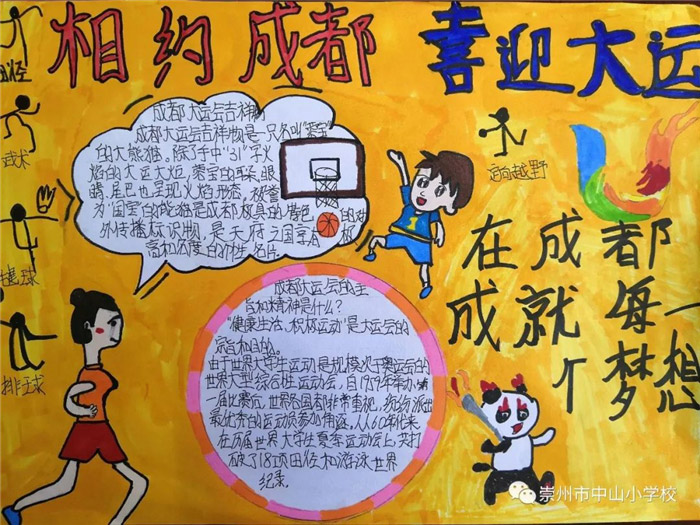 相约成都 喜迎大运
田径
武术
排球
定向越野
成都大运会吉祥物
成都大运会吉祥物是一只名叫“蓉宝”
的大熊猫。除了手中“31”字火
焰的大运火炬，蓉宝的耳朵、眼
睛、尾巴也呈现火焰形态，被誉
为“国宝”的熊猫是成都极具的角色 的对
外传播标识物，是天府之国享有 极
高知名度的个性名片
在成都
成就每一
个梦想
成都大运会的主
旨和精神是什么？
“健康生活、积极运动”是大运会的
宗旨和目的。
由于世界大学生运动是规模次于奥运会的
世界大型综合性运动会，自1959年举办第
一届比赛后，世界各国都非常重视，纷纷派出
最优秀的运动员参加角逐，从60年代来
在历届世界大学生夏季运动会上共打
破了18项田径和游泳世界
纪录。
崇州市中山小学校